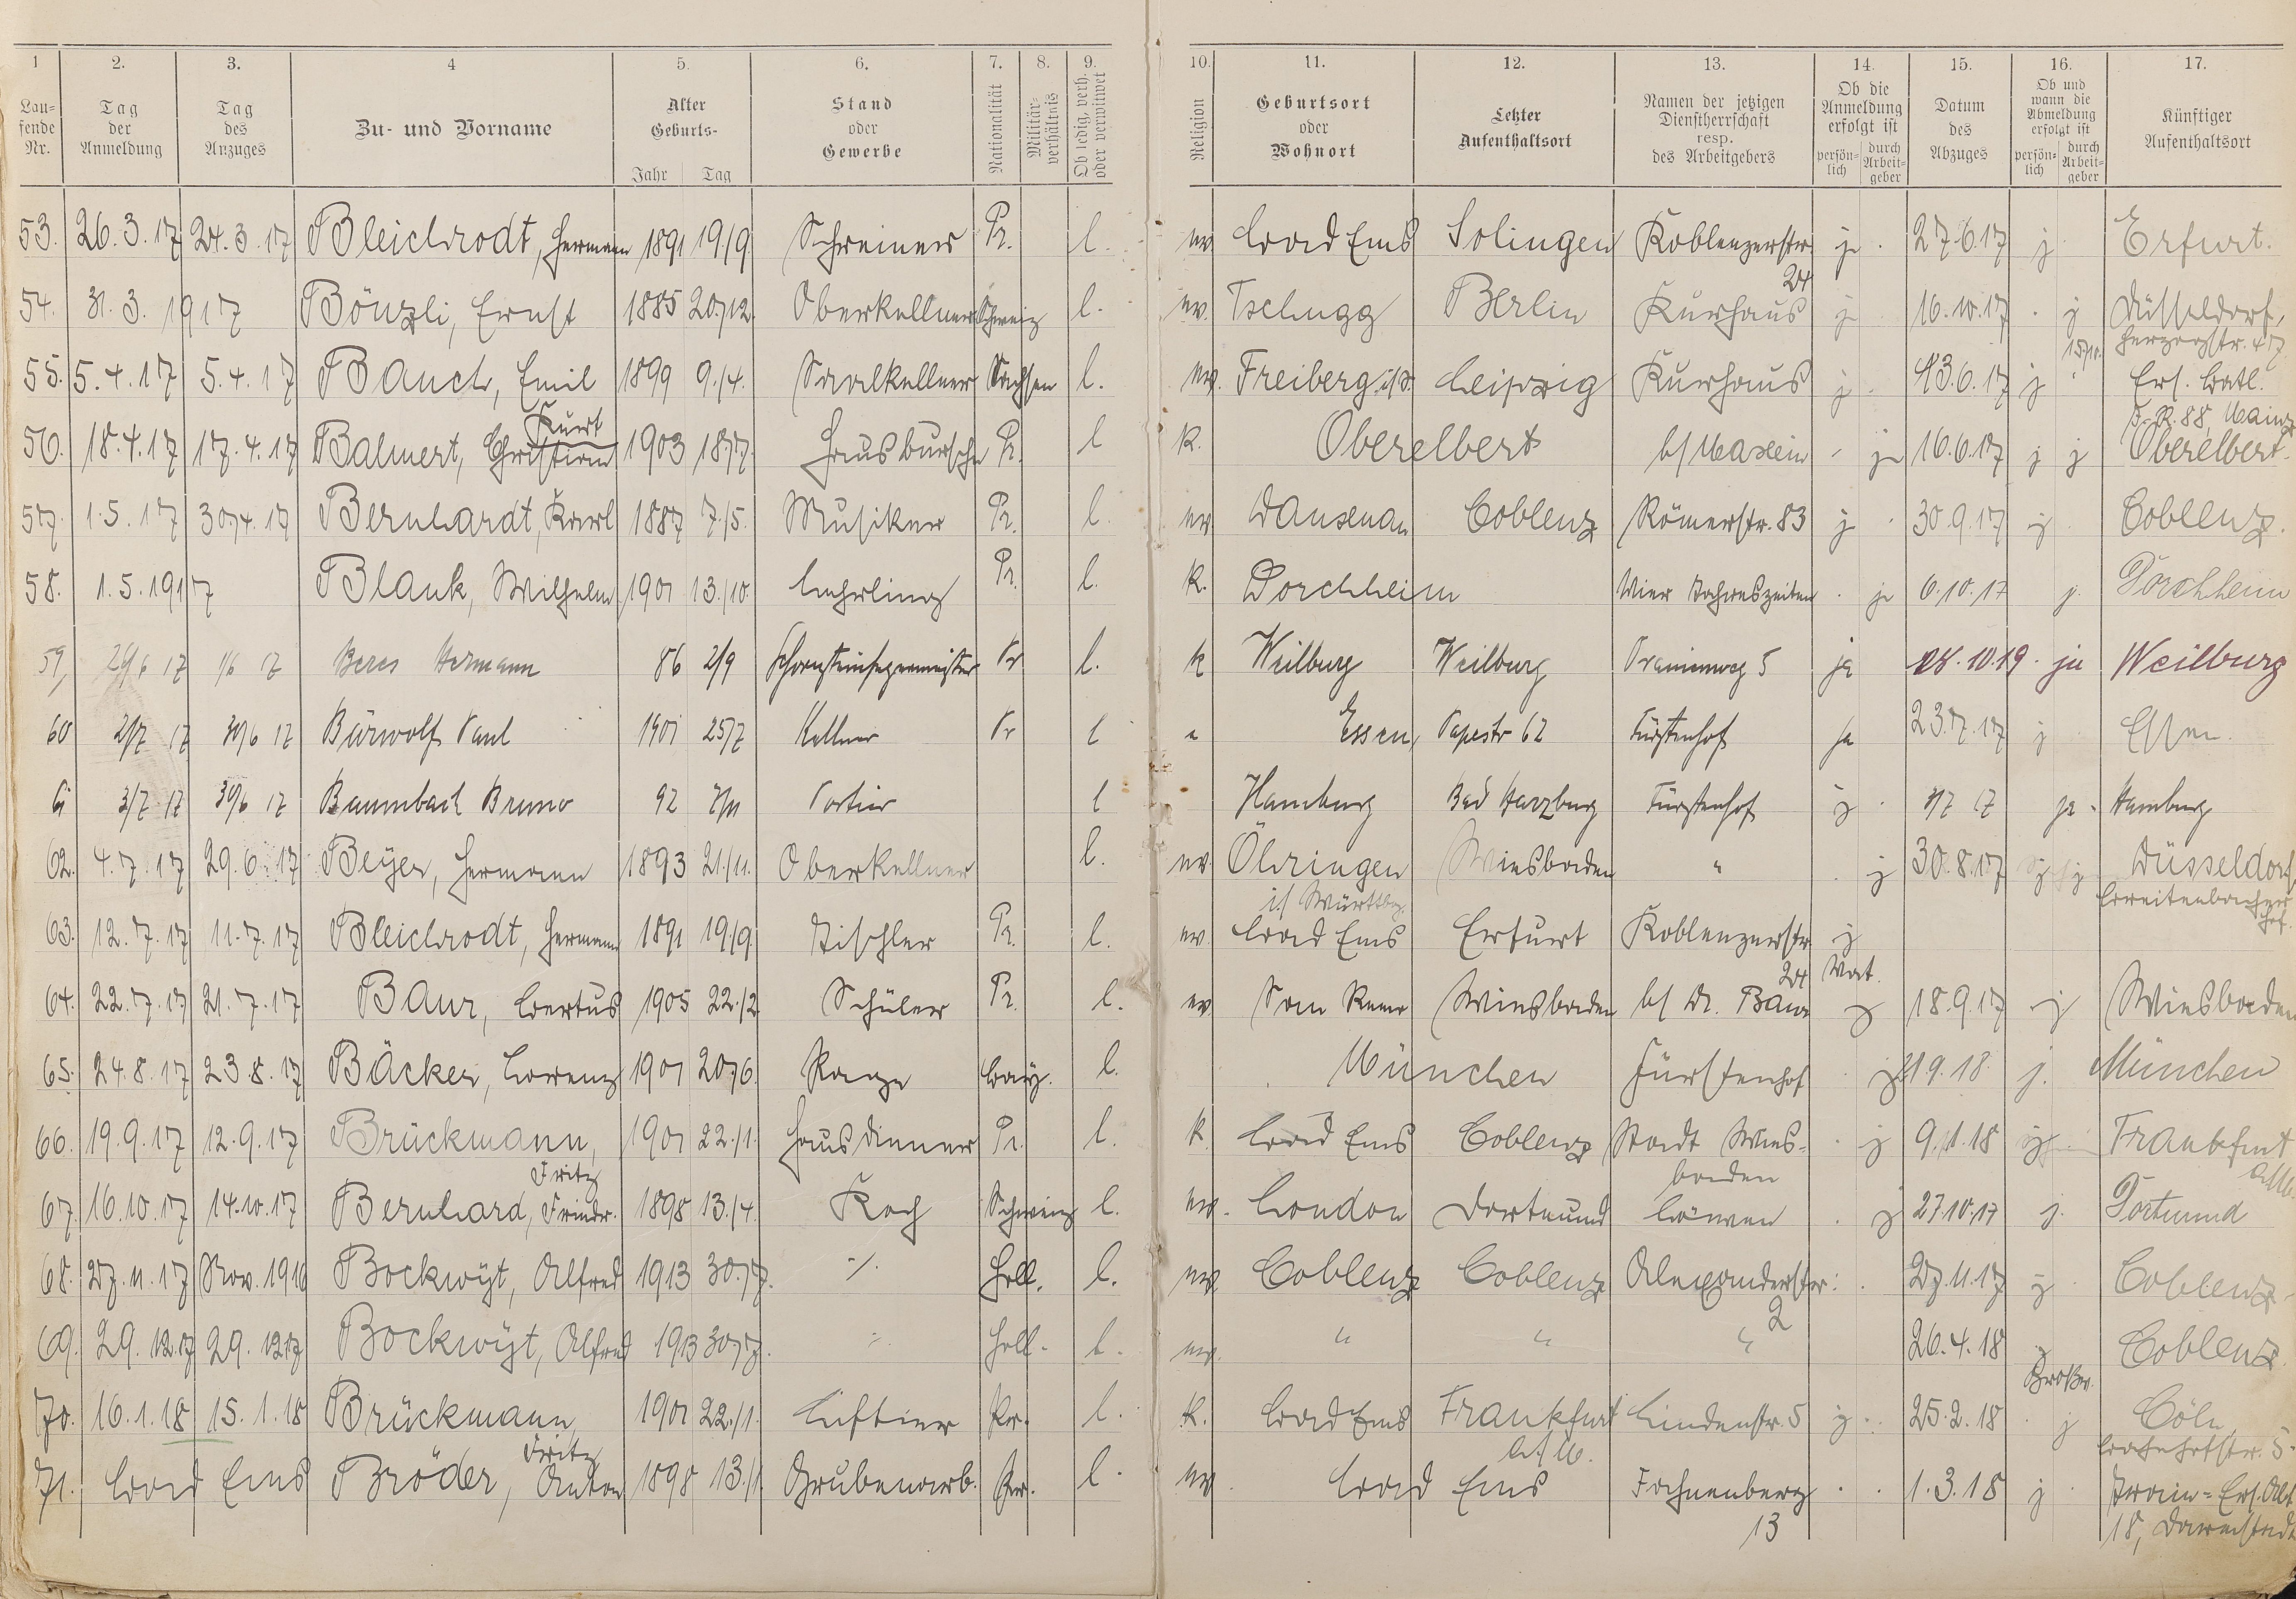 1 2. 3. 4 5. 6. 7. 8. 9. 10. 11. 12. 13. 14. 15. 16. 17.
Laufende Nr. Tag der Anmeldung Tag des Anzuges Zu- und Vorname Alter Geburts- Jahr Tag Stand oder Gewerbe Nationalität Militärverhältnis Ob ledig, verh. oder verwitwet Religion Geburtsort oder Wohnort Letzter Aufenthaltsort Namen der jetzigen Dienstherrschaft resp. des Arbeitgebers Ob die Anmeldung erfolgt ist persönlich durch Arbeitgeber Datum des Abzuges Ob und wann die Abmeldung erfolgt ist persönlich durch Arbeitgeber Künftiger Aufenthaltsort
53. 26.3.17 24.3.17 Bleichrodt, Hermann 1891 19/9. Schreiner Pr. l. ev. Bad Ems Solingen Koblenzerstr. 24 j. 27.6.17 j Erfurt.
54. 31.3.1917 Bönzli, Ernst 1885 20./12. Oberkellner Schweiz l. ev. Tschugg Berlin Kurhaus j 16.10.17 j 15./10. Düsseldorf, Herzogstr. 47
55. 5.4.17 5.4.17 Bauch, Emil 1899 9./4. Saalkellner Sachsen l. ev. Freiberg i/S. Leipzig Kurhaus j. 13.6.17 j Ers. Batl. I.R. 88, Mainz
56. 18.4.17 17.4.17 Balmert, Christian Kurt 1903 18./7. Hausbursche Pr. l k. Oberelbert b/ Maxein j 16.6.17 j j Oberelbert
57. 1.5.17 30./4.17 Bernhardt, Karl 1887 7./5. Musiker Pr. l. ev Dausenau Coblenz Römerstr. 83 j 30.9.17 j Coblenz.
58. 1.5.1917 Blank, Wilhelm 1901 13./10. Lehrling Pr. l. k. Dorchheim Vier Jahreszeiten j 6.10.17 j. Dorchheim
59, 29/6 17 1/6 17 Beres Hermann 86 2/9 Schornsteinfegermeister Pr l. k Weilburg Weilburg Oranienweg 5 ja 28.10.19. ja Weilburg
60 2/7 17 30/6 17 Bärwolf Paul 1901 25/7 Kellner Pr l e Essen, Papestr 62 Fürstenhof ja 23.7.17 j Essen.
61 3/7 17 30/6 17 Baumbach Bruno 92 7/11 Portier l Hamburg Bad Harzburg Fürstenhof j 17 ja. Hamburg
62. 4.7.17 29.6.17 Beyer, Hermann 1893 21./11. Oberkellner l. ev. Öhringen i/ Württbg. Wiesbaden " j 30.8.17 j Düsseldorf, Breitenbacher Hof.
63. 12.7.17 11.7.17 Bleichrodt, Hermann 1891 19./9. Tischler Pr. l. ev. Bad Ems Erfurt Koblenzerstr. 24 j Vat.
64. 22.7.17 21.7.17 Baur, Bertus 1905 22./2 Schüler Pr. l. ev San Remo Wiesbaden b/ Dr. Baur j 18.9.17 j Wiesbaden
65. 24.8.17 23.8.17 Bäcker, Lorenz 1901 20./6. Page Bay. l. München Fürstenhof j 9.18. j. München
66. 19.9.17 12.9.17 Brückmann, Fritz 1901 22./1. Hausdiener Pr. l. k Bad Ems Coblenz Stadt Wiesbaden j 9.1.18 j Frankfurt a/M.
67. 16.10.17 14.10.17 Bernhard, Friedr. 1898 13./4. Koch Schweiz l. ev. London Dortmund Löwen j 27.10.17 j. Dortmund
68. 27.11.17 Nov. 1916 Bockwyt, Alfred 1913 30./7. ./. Holl. l. ev. Coblenz Coblenz Alexanderstr. 2 27.11.17 j Coblenz.
69. 29.12.17 29.12.17 Bockwyt, Alfred 1913 30./7. ./. Holl. l. ev. " " " 26.4.18 j Großv. Coblenz.
70. 16.1.18 15.1.18 Brückmann, Fritz 1901 22./1. Liftier Pr. l. k. Bad Ems Frankfurt a/M. Lindenstr. 5 j. 25.2.18 j Cöln, Bahnhofstr. 5
71. Bad Ems Bröder, Anton 1898 13./1 Grubenarb. Pr. l. ev. Bad Ems Fahnenberg 13 1.3.18 j Train-Ers. Abt. 18, Darmstadt